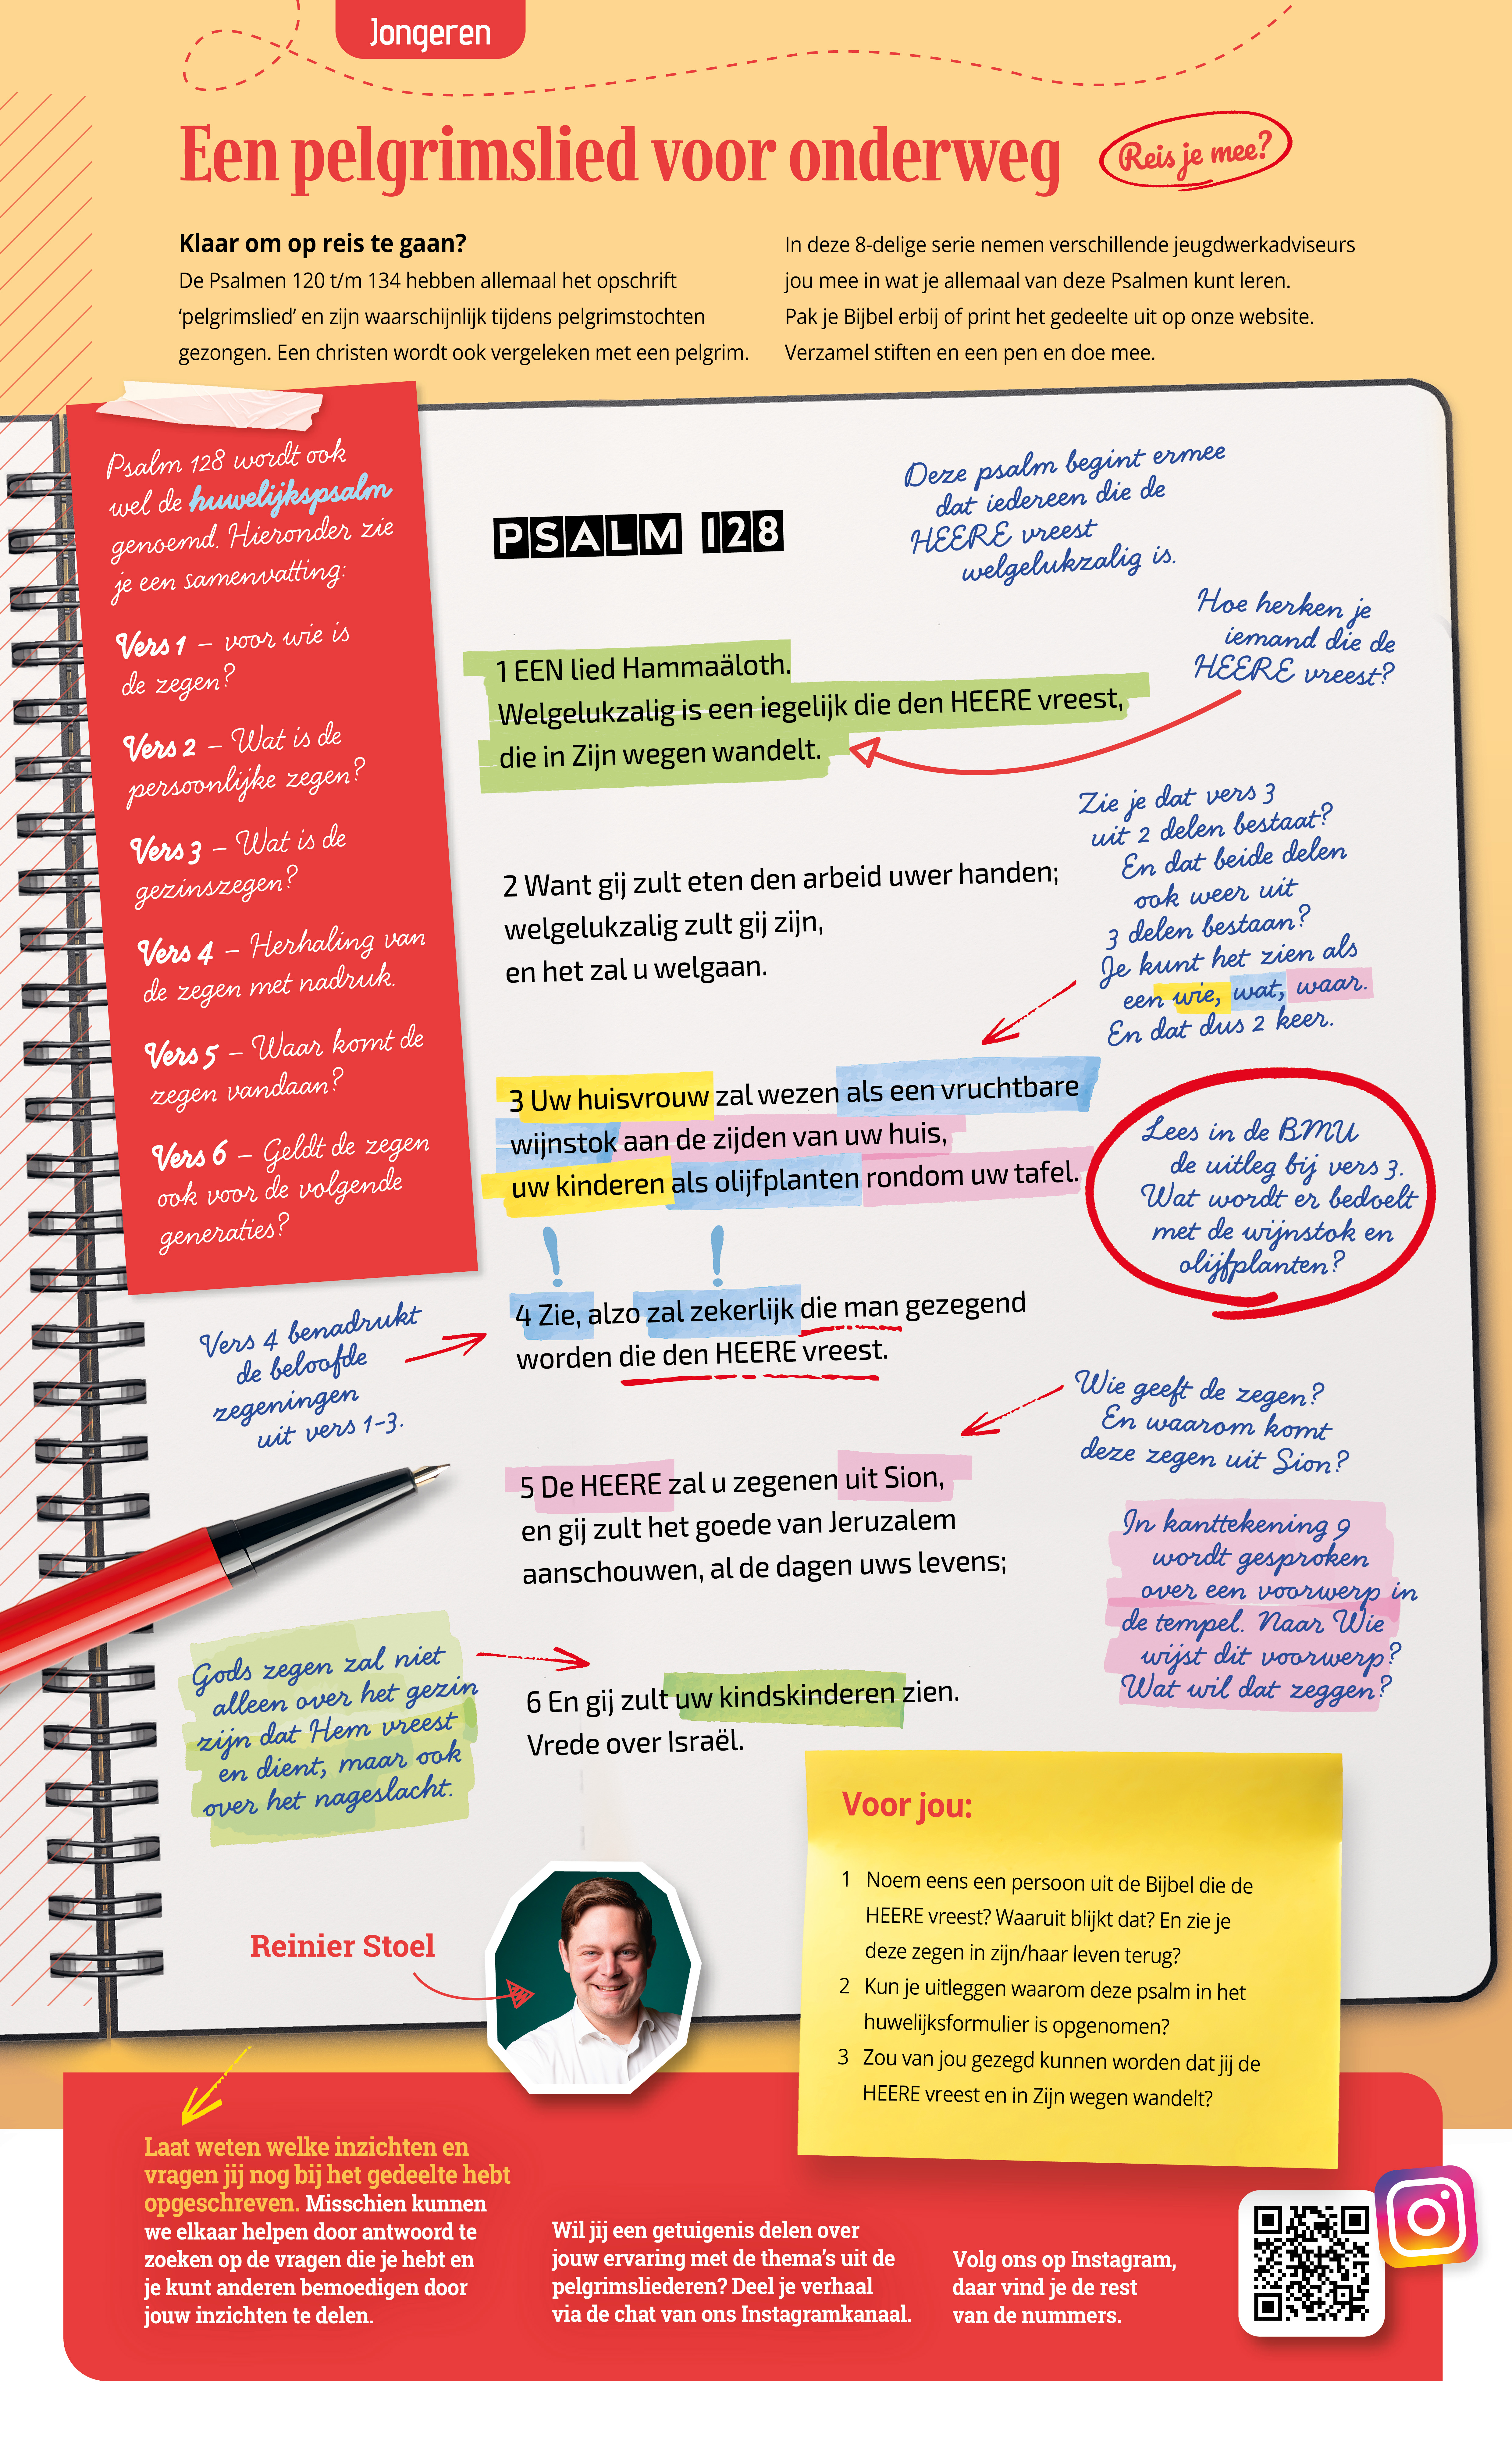 Jongeren
Een pelgrimslied voor onderweg
Reis je mee?
Klaar om op reis te gaan?
De Psalmen 120 t/m 134 hebben allemaal het opschrift
‘pelgrimslied’ en zijn waarschijnlijk tijdens pelgrimstochten
gezongen. Een christen wordt ook vergeleken met een pelgrim.
In deze 8-delige serie nemen verschillende jeugdwerkadviseurs
jou mee in wat je allemaal van deze Psalmen kunt leren.
Pak je Bijbel erbij of print het gedeelte uit op onze website.
Verzamel stiften en een pen en doe mee.
Psalm 128 wordt ook
wel de huwelijkspsalm
genoemd. Hieronder zie
je een samenvatting:
Vers 1 – voor wie is
de zegen?
Vers 2 – Wat is de
persoonlijke zegen?
Vers 3 – Wat is de
gezinszegen?
Vers 4 – Herhaling van
de zegen met nadruk.
Vers 5 – Waar komt de
zegen vandaan?
Vers 6 – Geldt de zegen
ook voor de volgende
generaties?
PSALM 128
Deze psalm begint ermee
dat iedereen die de
HEERE vreest
welgelukzalig is.
Hoe herken je
iemand die de
HEERE vreest?
1 EEN lied Hammaäloth.
Welgelukzalig is een iegelijk die den HEERE vreest,
die in Zijn wegen wandelt.
2 Want gij zult eten den arbeid uwer handen;
welgelukzalig zult gij zijn,
en het zal u welgaan.
Zie je dat vers 3
uit 2 delen bestaat?
En dat beide delen
ook weer uit
3 delen bestaan?
Je kunt het zien als
een wie, wat, waar.
En dat dus 2 keer.
3 Uw huisvrouw zal wezen als een vruchtbare
wijnstok aan de zijden van uw huis,
uw kinderen als olijfplanten rondom uw tafel.
Lees in de BMU
de uitleg bij vers 3.
Wat wordt er bedoelt
met de wijnstok en
olijfplanten?
! !
4 Zie, alzo zal zekerlijk die man gezegend
worden die den HEERE vreest.
Vers 4 benadrukt
de beloofde
zegeningen
uit vers 1-3.
Wie geeft de zegen?
En waarom komt
deze zegen uit Sion?
5 De HEERE zal u zegenen uit Sion,
en gij zult het goede van Jeruzalem
aanschouwen, al de dagen uws levens;
In kanttekening 9
wordt gesproken
over een voorwerp in
de tempel. Naar Wie
wijst dit voorwerp?
Wat wil dat zeggen?
Gods zegen zal niet
alleen over het gezin
zijn dat Hem vreest
en dient, maar ook
over het nageslacht.
6 En gij zult uw kindskinderen zien.
Vrede over Israël.
Reinier Stoel
Voor jou:
1 Noem eens een persoon uit de Bijbel die de
HEERE vreest? Waaruit blijkt dat? En zie je
deze zegen in zijn/haar leven terug?
2 Kun je uitleggen waarom deze psalm in het
huwelijksformulier is opgenomen?
3 Zou van jou gezegd kunnen worden dat jij de
HEERE vreest en in Zijn wegen wandelt?
Laat weten welke inzichten en
vragen jij nog bij het gedeelte hebt
opgeschreven. Misschien kunnen
we elkaar helpen door antwoord te
zoeken op de vragen die je hebt en
je kunt anderen bemoedigen door
jouw inzichten te delen.
Wil jij een getuigenis delen over
jouw ervaring met de thema’s uit de
pelgrimsliederen? Deel je verhaal
via de chat van ons Instagramkanaal.
Volg ons op Instagram,
daar vind je de rest
van de nummers.